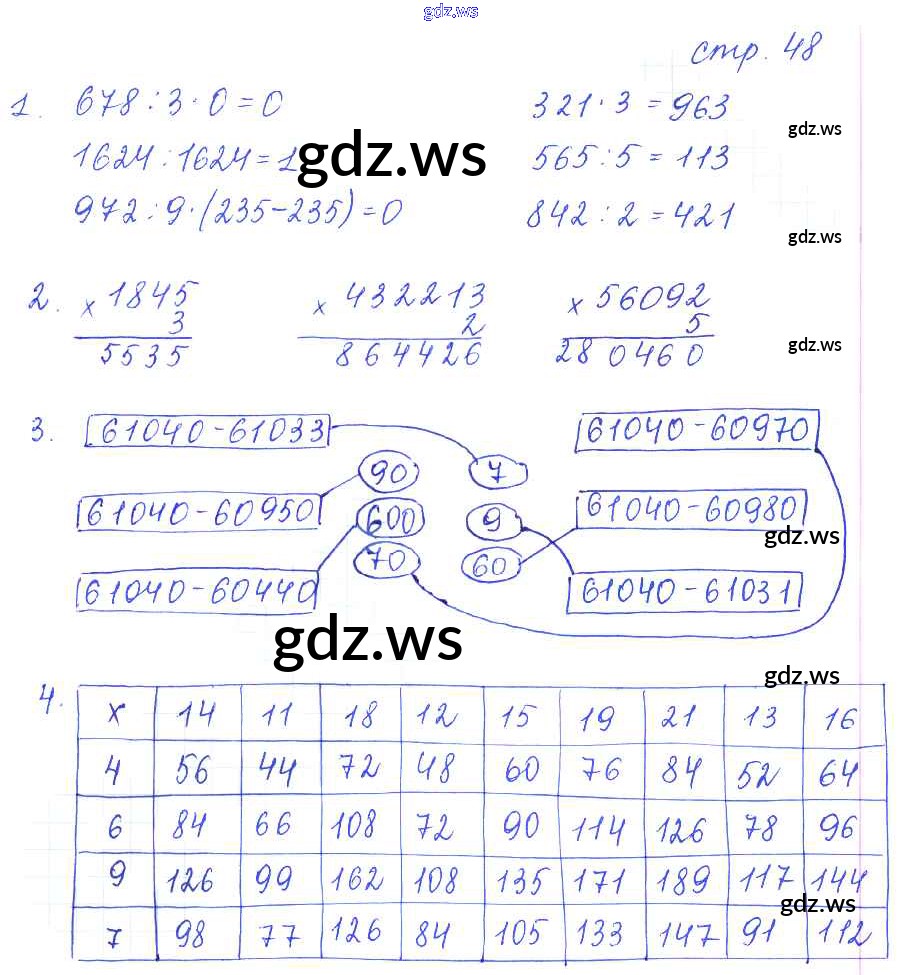 gdz.ws
стр. 48
1. 678 : 3 · 0 = 0 321 · 3 = 963
gdz.ws
1624 : 1624 = 1 565 : 5 = 113
gdz.ws
972 : 9 · (235 - 235) = 0 842 : 2 = 421
gdz.ws
2. x 1845 x 432213 x 56092
3 2 5
gdz.ws
5535 864426 280460
3. 61040 - 61033 61040 - 60970
90 7
61040 - 60950 600 9 61040 - 60980
gdz.ws
70 60
61040 - 60440 61040 - 61031
gdz.ws
gdz.ws
4. x 14 11 18 12 15 19 21 13 16
4 56 44 72 48 60 76 84 52 64
6 84 66 108 72 90 114 126 78 96
9 126 99 162 108 135 171 189 117 144
gdz.ws
7 98 77 126 84 105 133 147 91 112